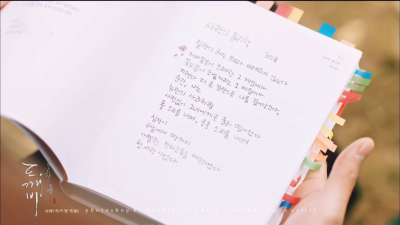 사랑의 물리학
김인육
질량의 크기는 부피와 비례하지 않는다
제비꽃같이 조그마한 그 계집애가
꽃잎같이 하늘거리는 그 계집애가
지구보다 더 큰 질량으로 나를 끌어당긴다.
순간, 나는
뉴턴의 사과처럼
사정없이 그녀에게로 굴러 떨어졌다
쿵 소리를 내며, 쿵쿵 소리를 내며
심장이
하늘에서 땅까지
아찔한 진자운동을 계속하였다
첫사랑이었다.
도깨비
photoshop by